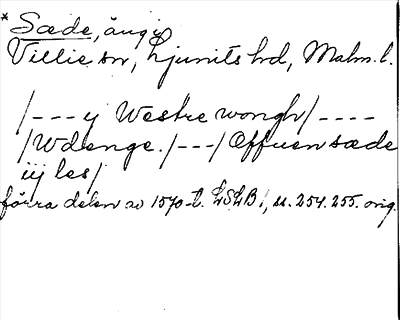 * Sæde, äng i
Villie sn, Ljunits hd, Malm. l.
/--- y Westre wongh/----
/Wdenge./---/Offuen sæde
iij les/
förra delen av 1570-t. LSLB 1, s. 254. 255. orig.